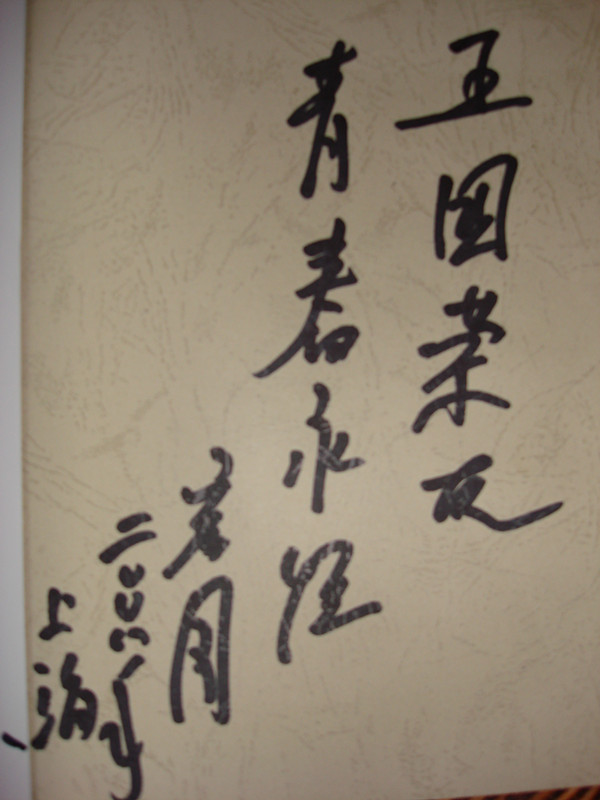 王国荣友
青春永驻
二〇〇八年
上海